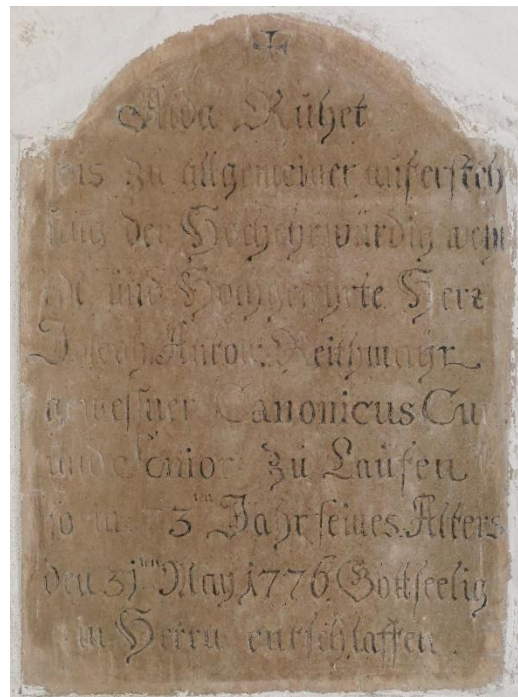 Alda Ruhet
bis zu allgemeiner aufersteh
ung der Hochehrwürdig wohl
edl und Hochgelehrte Herr
Joseph Anton Reithmayr
gewesner Canonicus Cur
und Senior zu Laufen
so im 73ten Jahr seines Alters
den 31ten May 1776 Gottseelig
in Herrn entschlaffen.